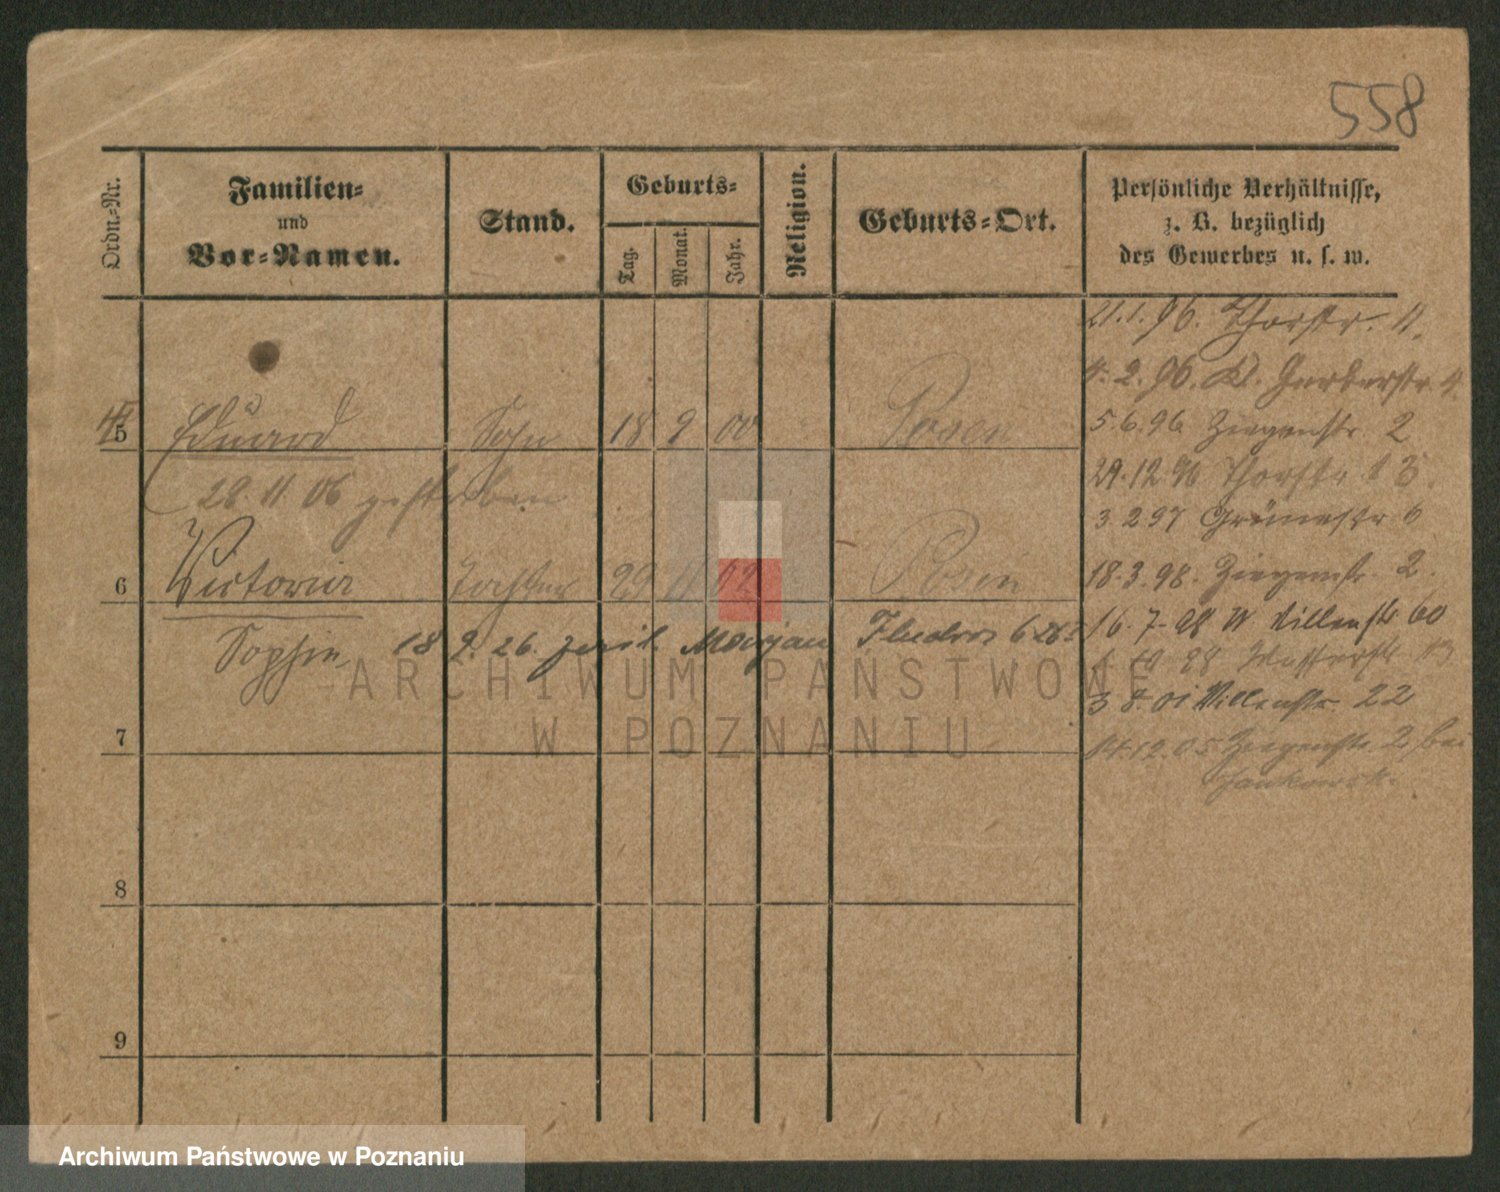 558
Ordn.-Nr.
Familien-
und
Vor-Namen.
Stand.
Geburts-
Tag.
Monat.
Jahr.
Religion.
Geburts-Ort.
Persönliche Verhältnisse,
z. B. bezüglich
des Gewerbes u. s. w.
21.1.96. Thorstr. 11.
4. 2. 96. Kl. Gerberstr. 4.
5 Eduard Sohn 18 9 00 Posen
5.6.96 Ziegenstr. 2
29.12.96 Thorstr. 13.
28.11.06 gestorben
3 2 97 Grünestr 6
6 Victoria Tochter 29 11 02 Posen
18.3.98. Ziegenstr. 2.
16.7.98 W Villenstr 60
Sophie 18 2. 26. Marjan
98 Wasserstr. 13
3 8. 01 Villenstr. 22
7
14.12.05 Ziegenstr. 2, bei
Jankowsk.
8
9
ARCHIWUM PAŃSTWOWE
W POZNANIU
Archiwum Państwowe w Poznaniu